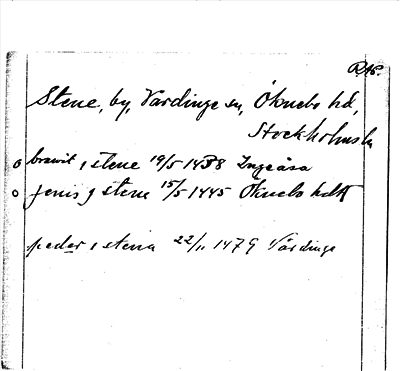 RAP.
Stene, by, Vårdinge sn, Öknebo hd,
Stockholms ln
o bravit i stene 19/5 1438 Ingeåsa
o jenis j stene 15/5 1445 Öknebo hdtt
peder i stena 22/11 1479 Vårdinge